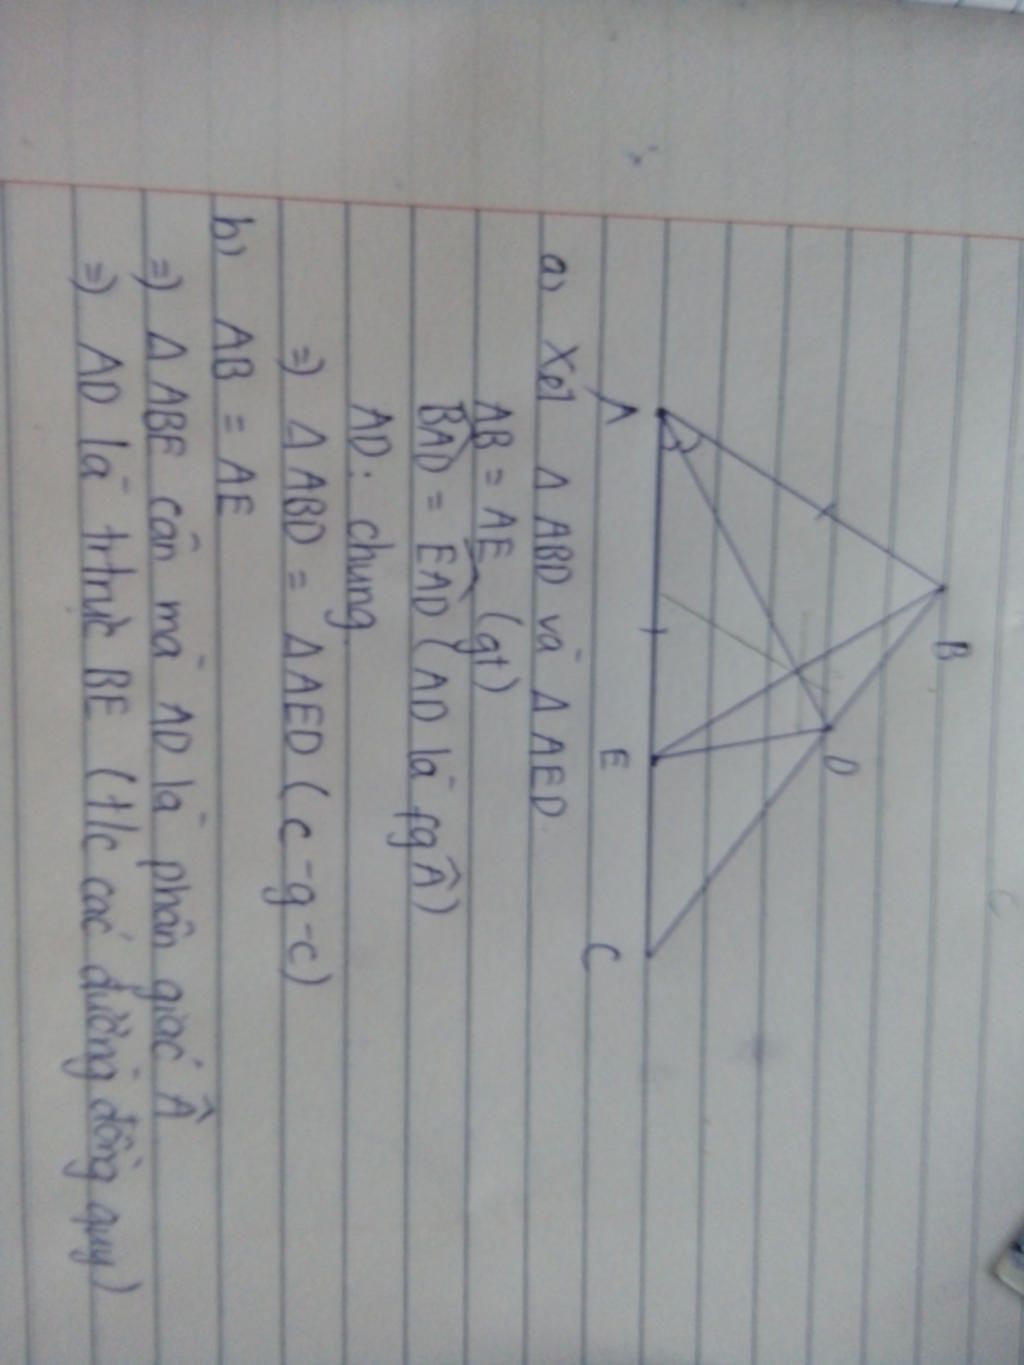 B
D
A
E
C
a) Xét Δ ABD và Δ AED
AB = AE (gt)
BAD̂ = EAD̂ (AD là fg Â)
AD: chung
=) Δ ABD = Δ AED (c-g-c)
b) AB = AE
=) Δ ABE cân mà AD là phân giác Â
=) AD là trtrực BE (t/c các đường đồng quy)